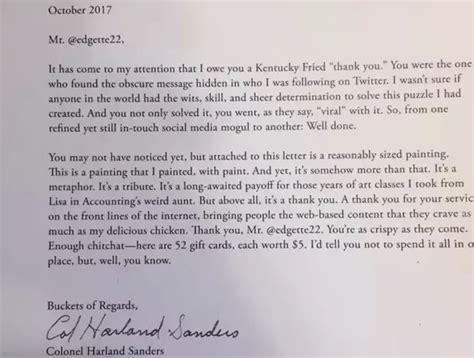 October 2017
Mr. @edgette22,
It has come to my attention that I owe you a Kentucky Fried “thank you.” You were the one
who found the obscure message hidden in who I was following on Twitter. I wasn't sure if
anyone in the world had the wits, skill, and sheer determination to solve this puzzle I had
created. And you not only solved it, you went, as they say, “viral” with it. So, from one
refined yet still in-touch social media mogul to another: Well done.
You may not have noticed yet, but attached to this letter is a reasonably sized painting.
This is a painting that I painted, with paint. And yet, it's somehow more than that. It's a
metaphor. It's a tribute. It's a long-awaited payoff for those years of art classes I took from
Lisa in Accounting's weird aunt. But above all, it's a thank you. A thank you for your servic
on the front lines of the internet, bringing people the web-based content that they crave as
much as my delicious chicken. Thank you, Mr. @edgette22. You're as crispy as they come.
Enough chitchat—here are 52 gift cards, each worth $5. I'd tell you not to spend it all in o
place, but, well, you know.
Buckets of Regards,
Col Harland Sanders
Colonel Harland Sanders